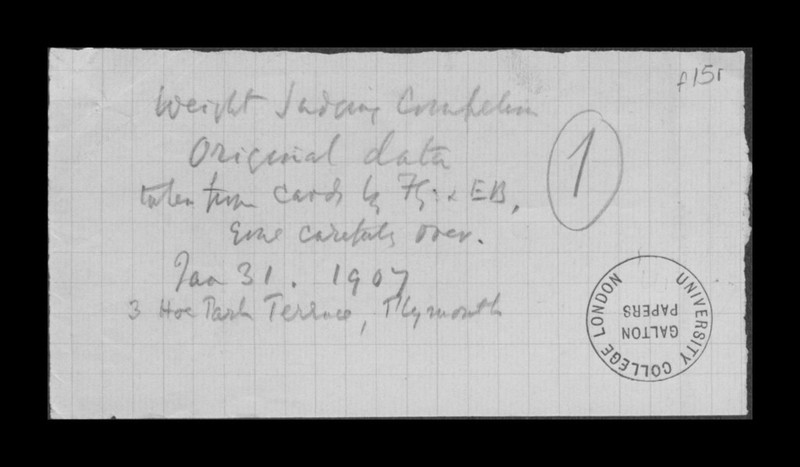 f15r
Weight Judging Competion
Original data
taken from cards by FG. & EB.
Gone carefully over.
1
Jan 31. 1907
3 Hoe Park Terrace, Plymouth
UNIVERSITY COLLEGE LONDON
GALTON
PAPERS